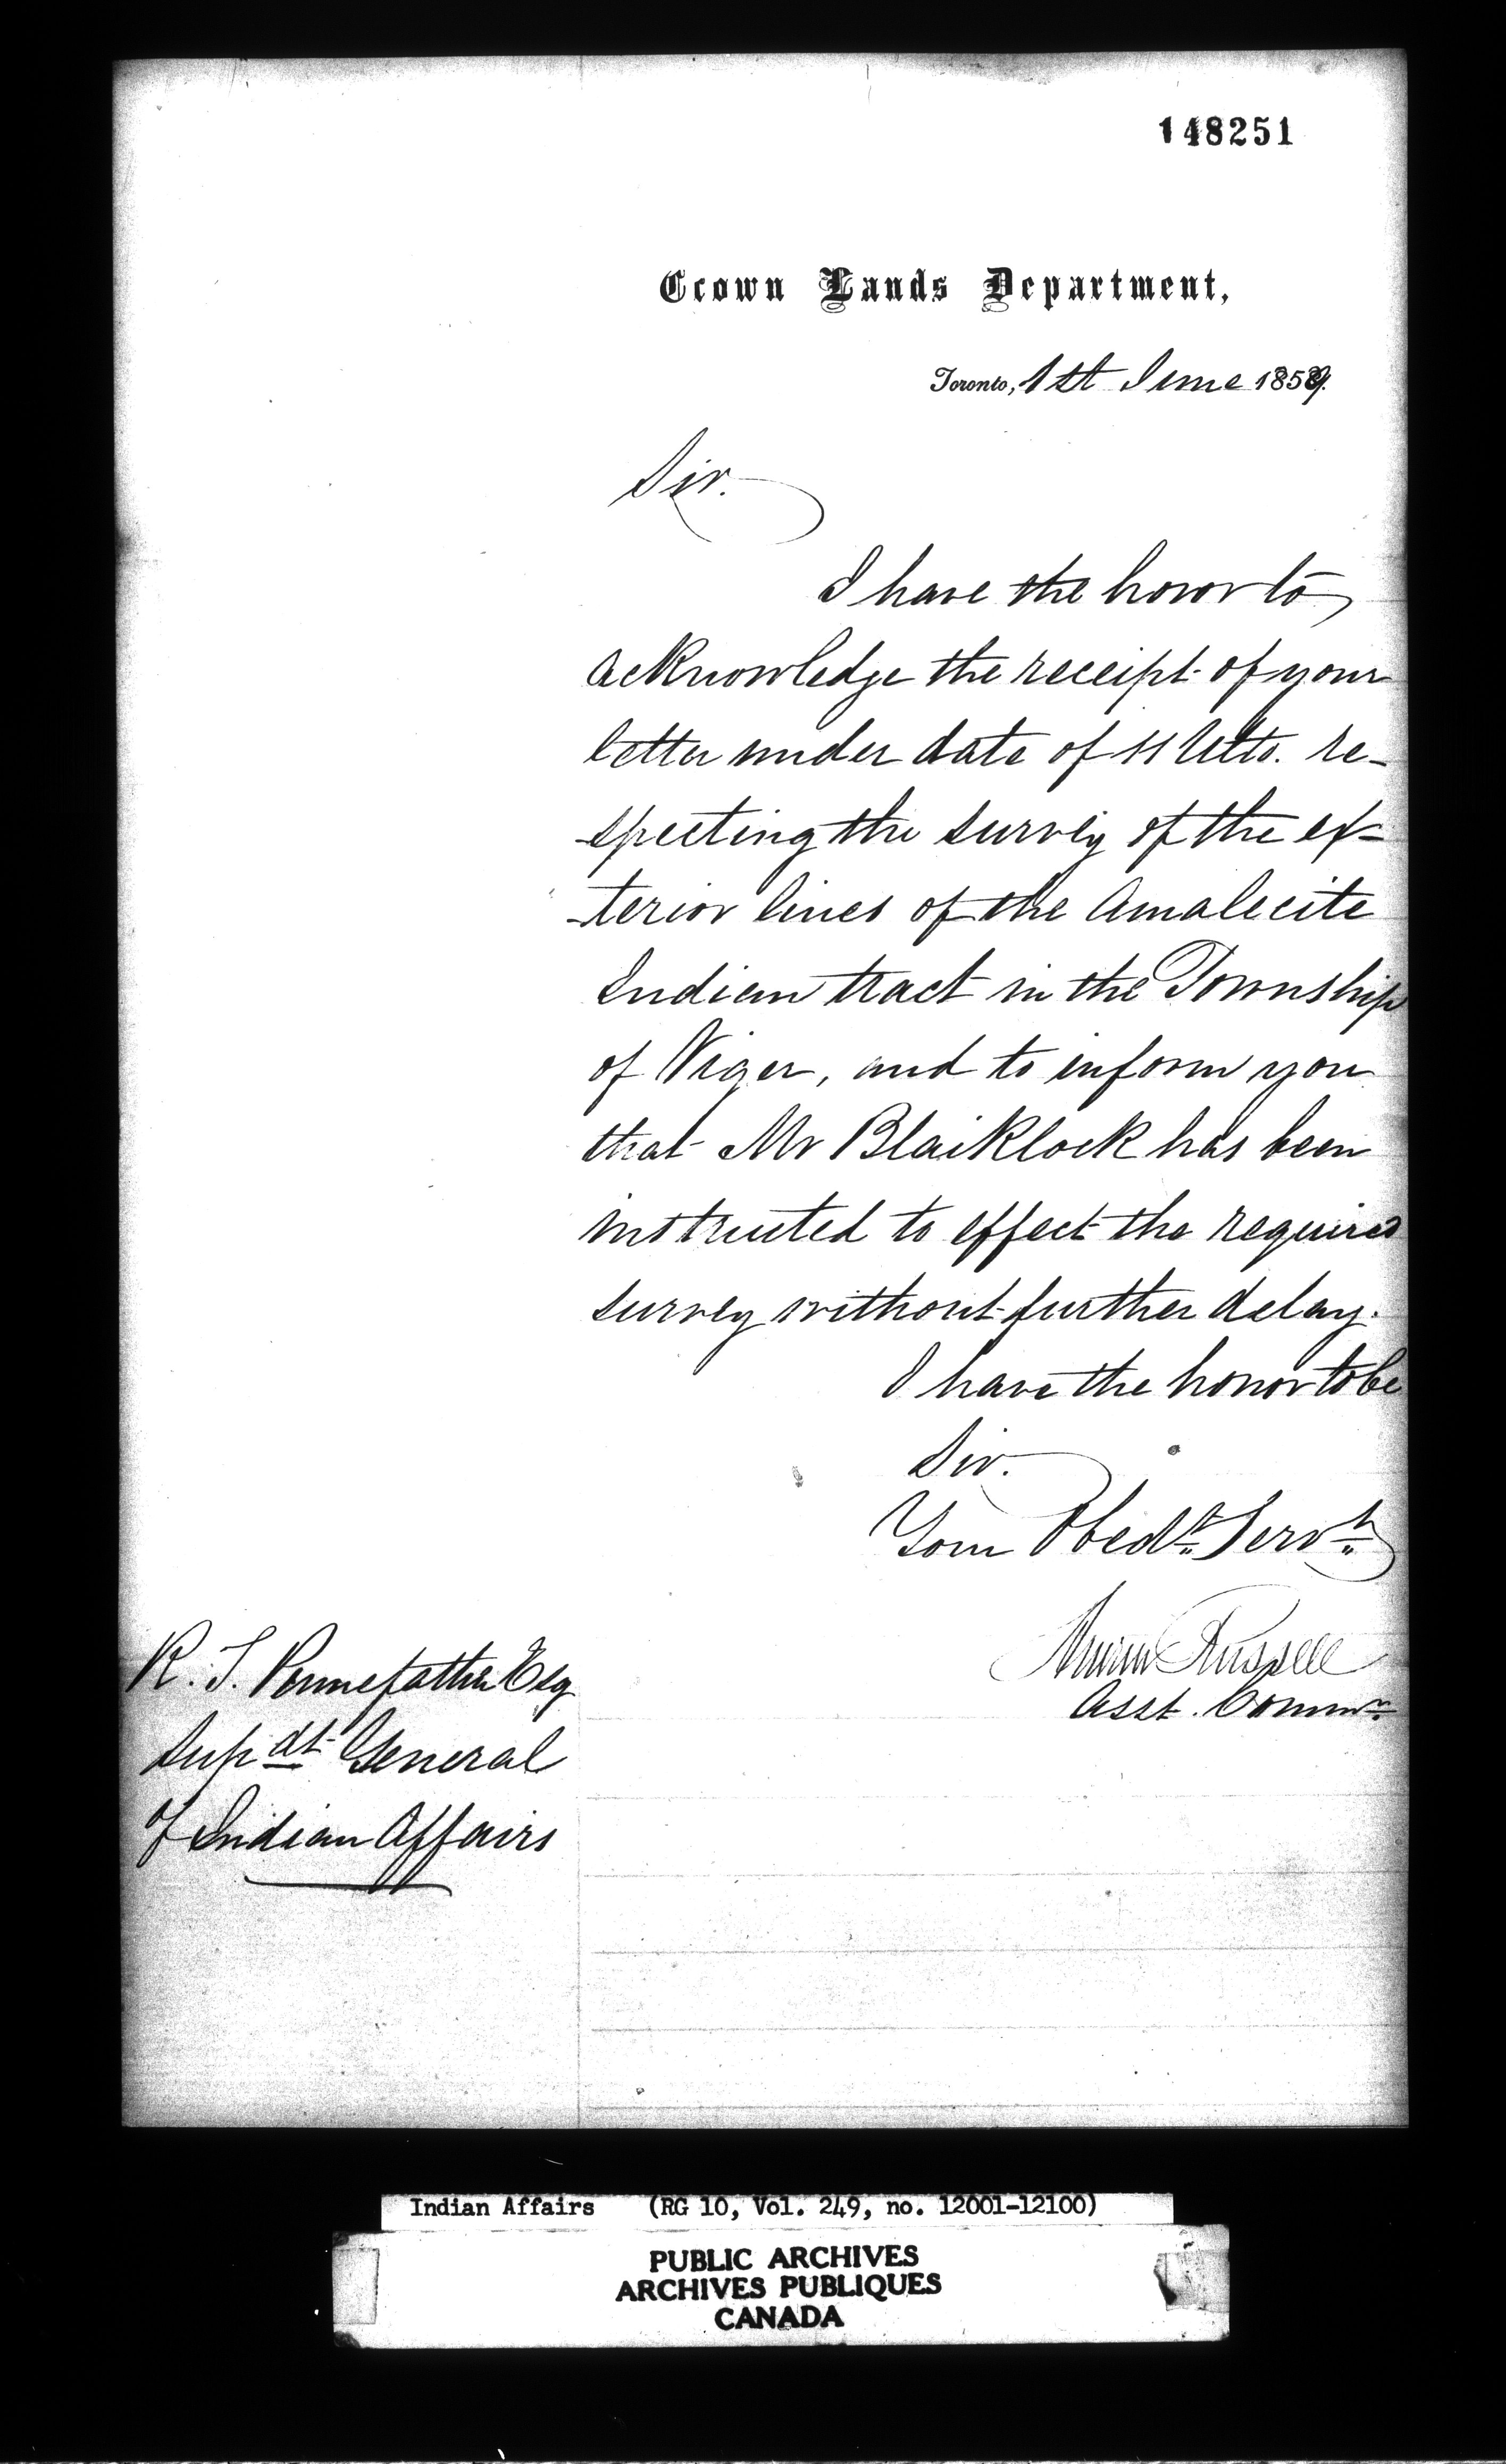 148251
Crown Lands Department,
Toronto, 1st June 1859.
Sir.
I have the honor to
acknowledge the receipt of your
letter under date of 11 Ulto. re-
-specting the survey of the ex-
-terior lines of the Amalecite
Indian tract in the Township
of Viger, and to inform you
that Mr Blaiklock has been
instructed to effect the required
survey without further delay.
I have the honor to be
Sir.
Your Obedt. Servt.
Andrew Russell
Asst. Commr.
R. T. Pennefather Esq
Supdt General
of Indian Affairs
Indian Affairs (RG 10, Vol. 249, no. 12001-12100)
PUBLIC ARCHIVES
ARCHIVES PUBLIQUES
CANADA